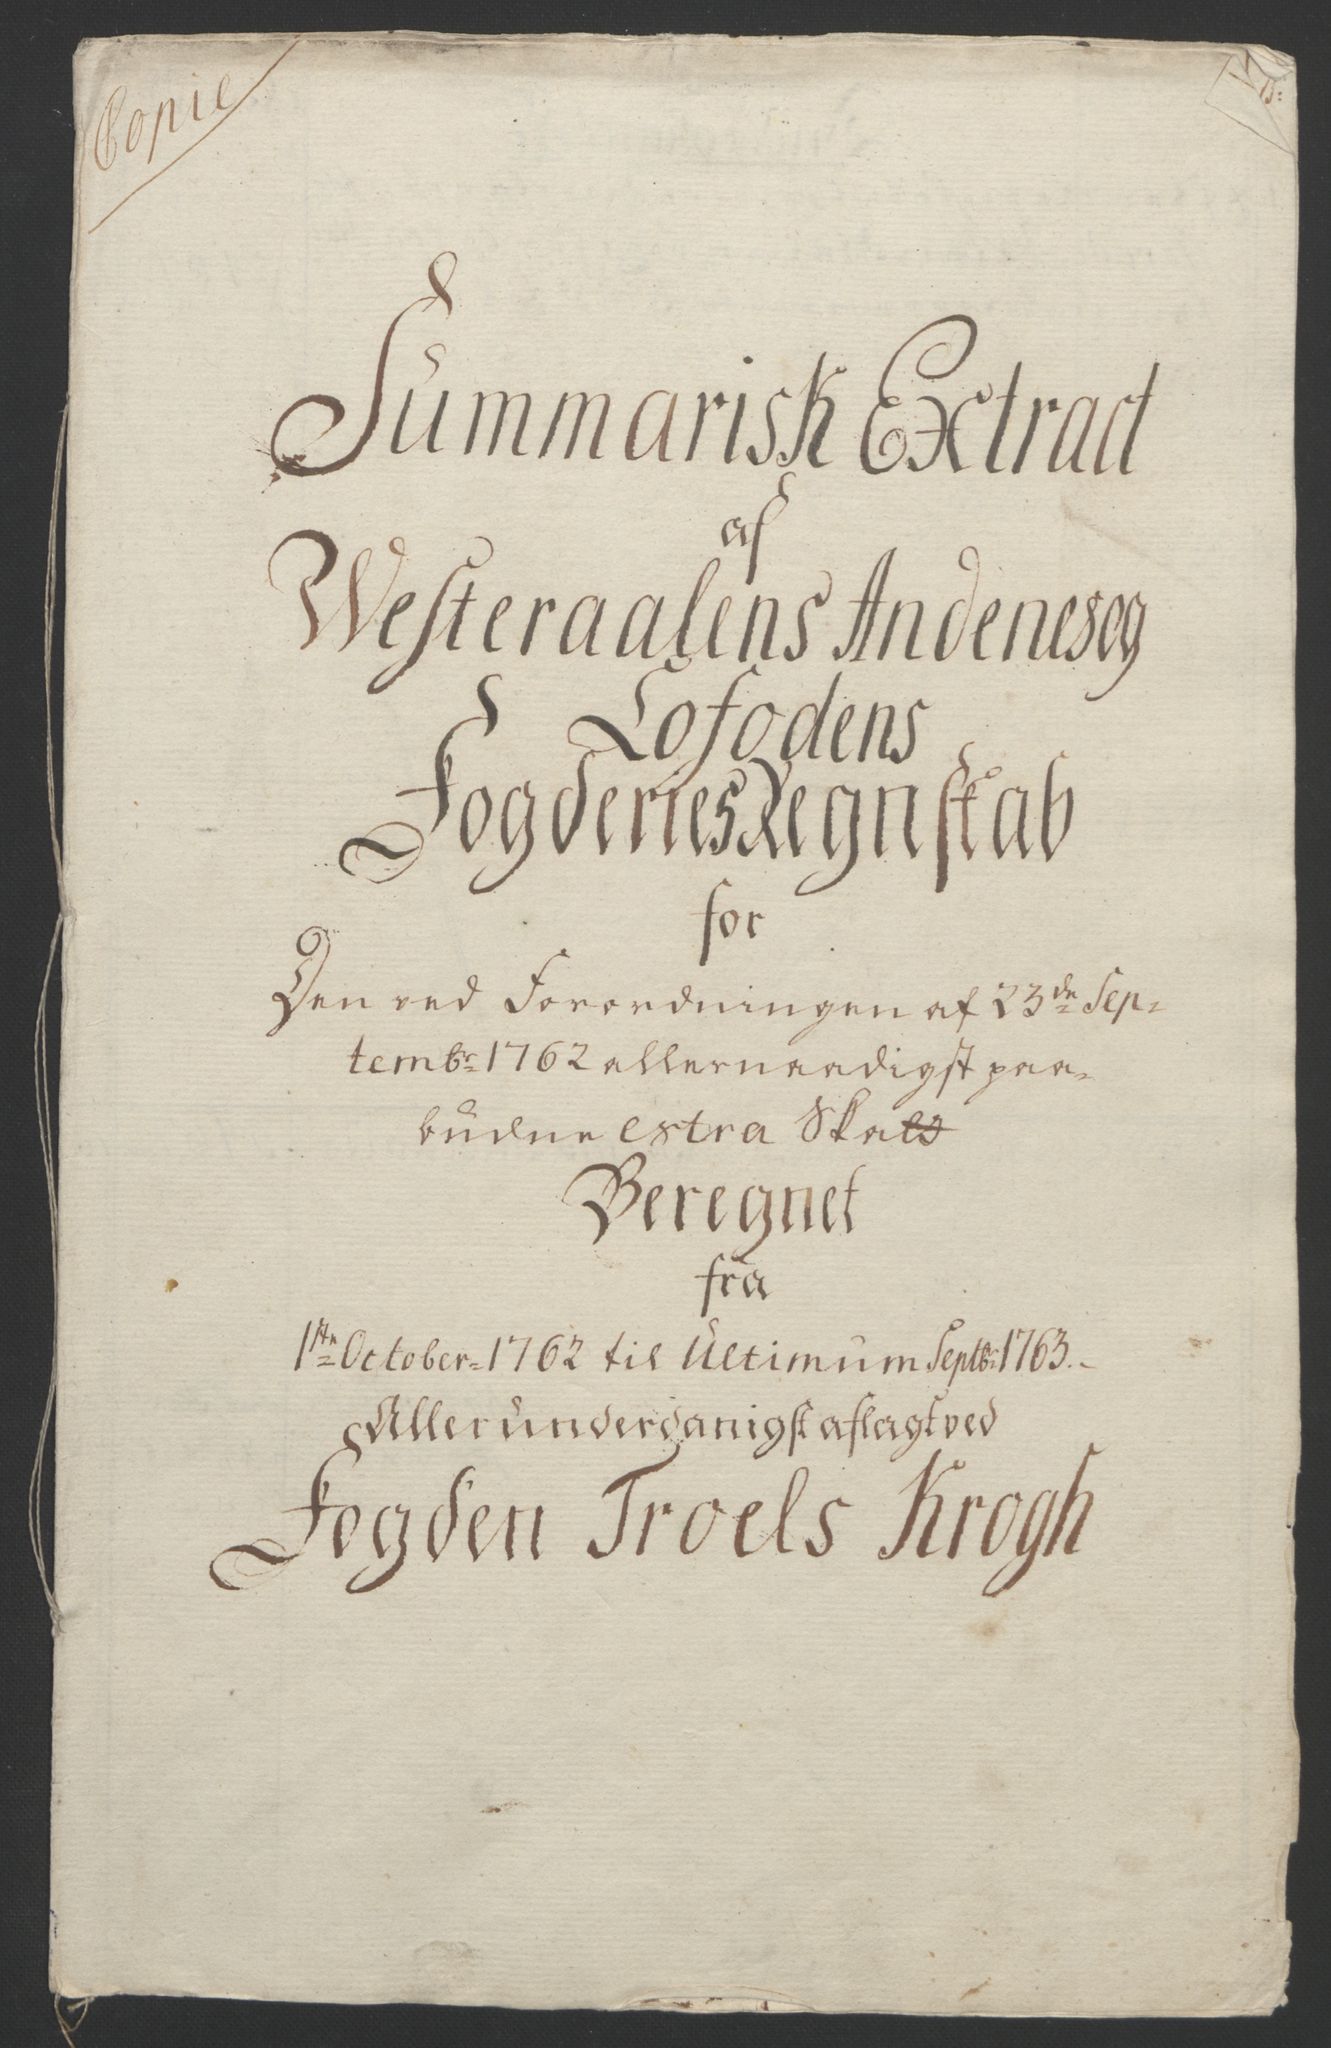 Copie
Summarisk Extract
af
Westeraalens Andenes og
Lofodens
Fogderies Regnskab
for
Den ved Forordningen af 23de Sep-
tembr 1762 allernaadigst paa-
budne extra Skatt
Beregnet
fra
1ste October 1762 til Ultimum Septbr 1763.
Allerunderdanigst aflagt ved
Fogden Troels Krogh